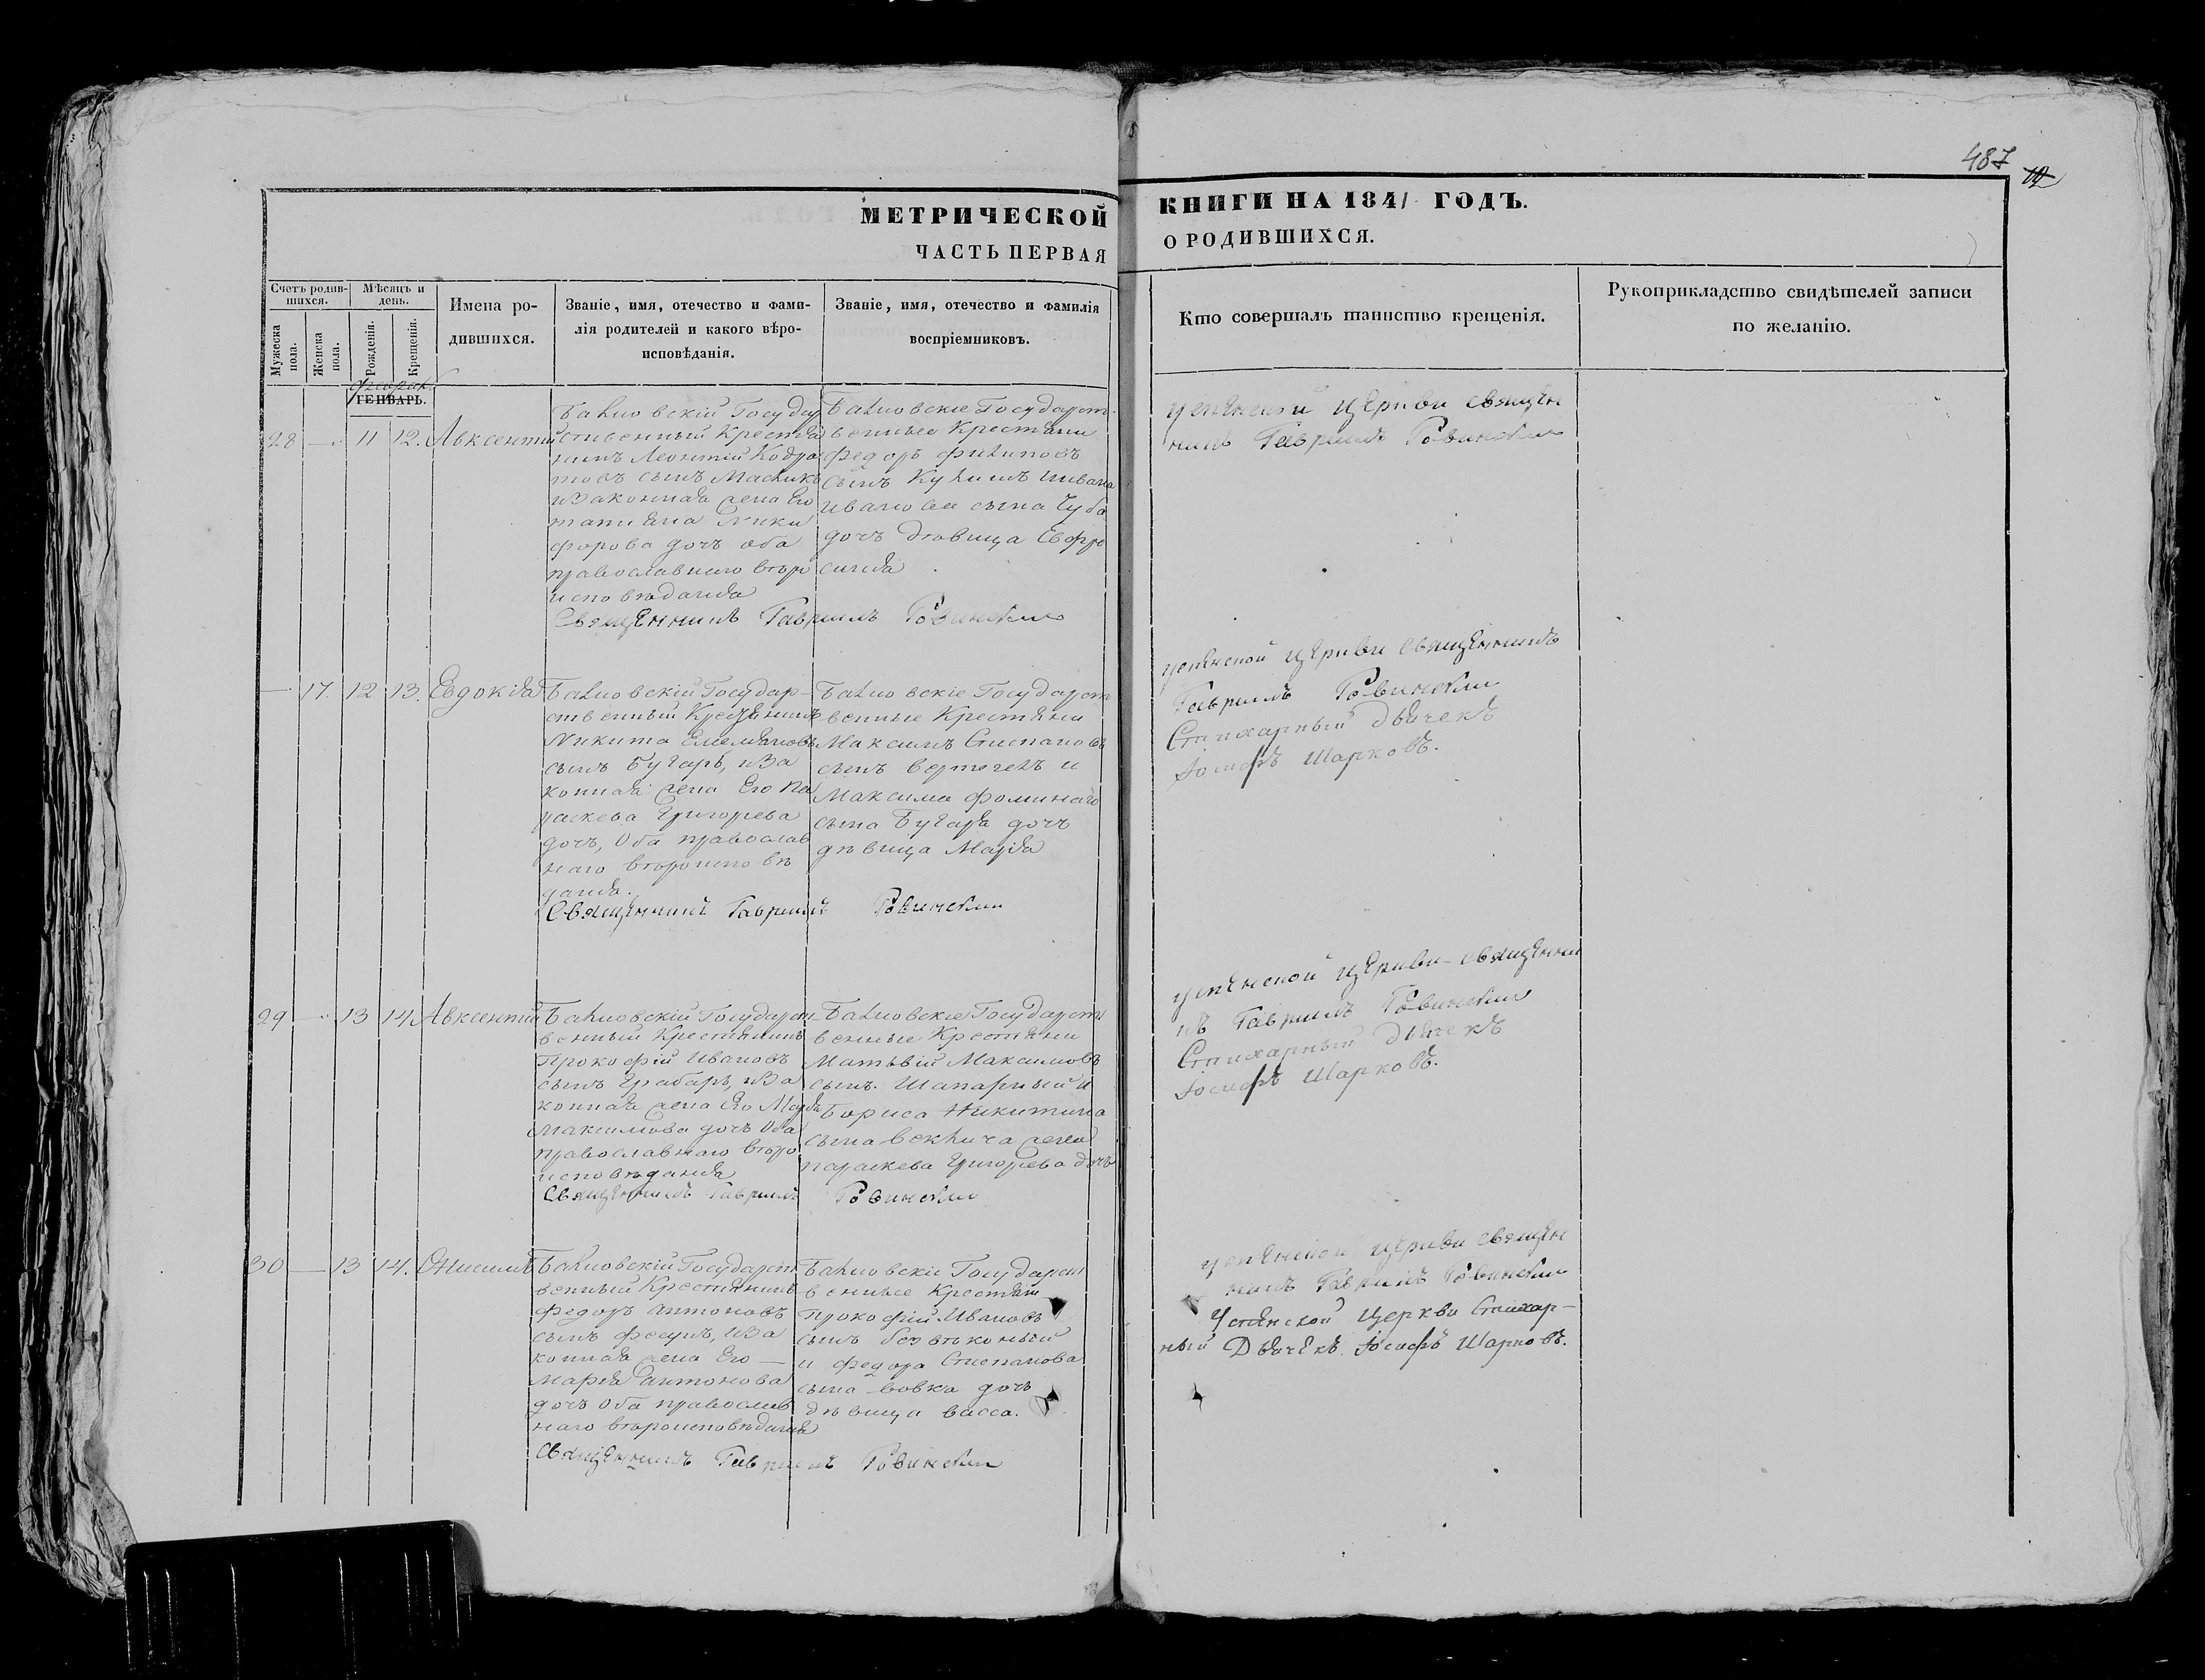 487
МЕТРИЧЕСКОЙ
ЧАСТЬ ПЕРВАЯ
КНИГИ НА 1841 ГОДЪ.
О РОДИВШИХСЯ.
Счетъ родив-
шихся.
Мужеска
пола.
Женска
пола.
Мѣсяцъ и
день.
Рожденія.
Крещенія.
Имена ро-
дившихся.
Званіе, имя, отечество и фами-
лія родителей и какого вѣро-
исповѣданія.
Званіе, имя, отечество и фамилія
воспріемниковъ.
Кто совершалъ таинство крещенія.
Рукоприкладство свидѣтелей записи
по желанію.
ГЕНВАРЬ.
28 — 11 12. Авксентій
Государ
ственный Крестья
нинъ Леонтій Кодра
товъ сынъ
изаконная жена Его
татияна Ники
форова дочь оба
православнаго вѣро
исповѣданія
Священникъ Гавріилъ Ровинскій
Государст
венные Крестяни
Федоръ Филиповъ
сынъ Ивана
Иванова сына Чуба
дочь дѣвица Евфро
синія
Успенской Церкви Священ
никъ Гавріилъ Ровинскій
— 17. 12 13. Евдокія
Государ-
ственный Крестянинъ
Никита Емеляновъ
сынъ Бугаръ, иза
конная жена Его Па
раскева Григорева
дочь, Оба православ
наго вѣроисповѣ
данія.
Священникъ Гавріилъ Ровинскій
Государст
венные Крестяни
Максимъ Степановъ
сынъ и
Максима Фоминаго
сына Бугара дочь
дѣвица Марія
Успенской Церкви Священникъ
Гавріилъ Ровинскій
Стихарный Дьячекъ
Іосифъ Шарковъ.
29 — 13 14 Авксентій
Государст
венный Крестянинъ
Прокофій Ивановъ
сынъ Грабаръ, иза
конная жена Его Марія
Максимова дочь Оба
православнаго вѣро
исповѣданія
Священникъ Гавріилъ Ровинскій
Государст
венные Крестяни
Матьвій Максимовъ
сынъ Шапарный и
Бориса Никитина
сына жена
параскева Григорева дочь
Успенской Церкви Священни
къ Гавріилъ Ровинскій
Стихарный Дьячекъ
Іосифъ Шарковъ.
30 — 13 14. Онисимъ
Государст
венный Крестянинъ
Федоръ Антоновъ
сынъ иза
конная жена Его —
Марія Антонова
дочь Оба православ
наго вѣроисповѣданія
Священникъ Гавріилъ Ровинскій
Государст
венные Крестяни
Прокофій Ивановъ
сынъ
и Федора Степанова
сына Вовка дочь
дѣвица Васса.
Успенской Церкви Священ
никъ Гавріилъ Ровинскій
Успенской Церкви Стихар-
ный Дьячекъ Іосифъ Шарковъ.